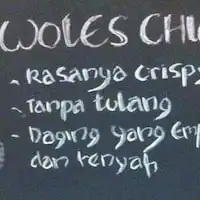 WOLES CHI
- Rasanya crispy
- Tanpa tulang
- Daging yang Emp
dan renyah